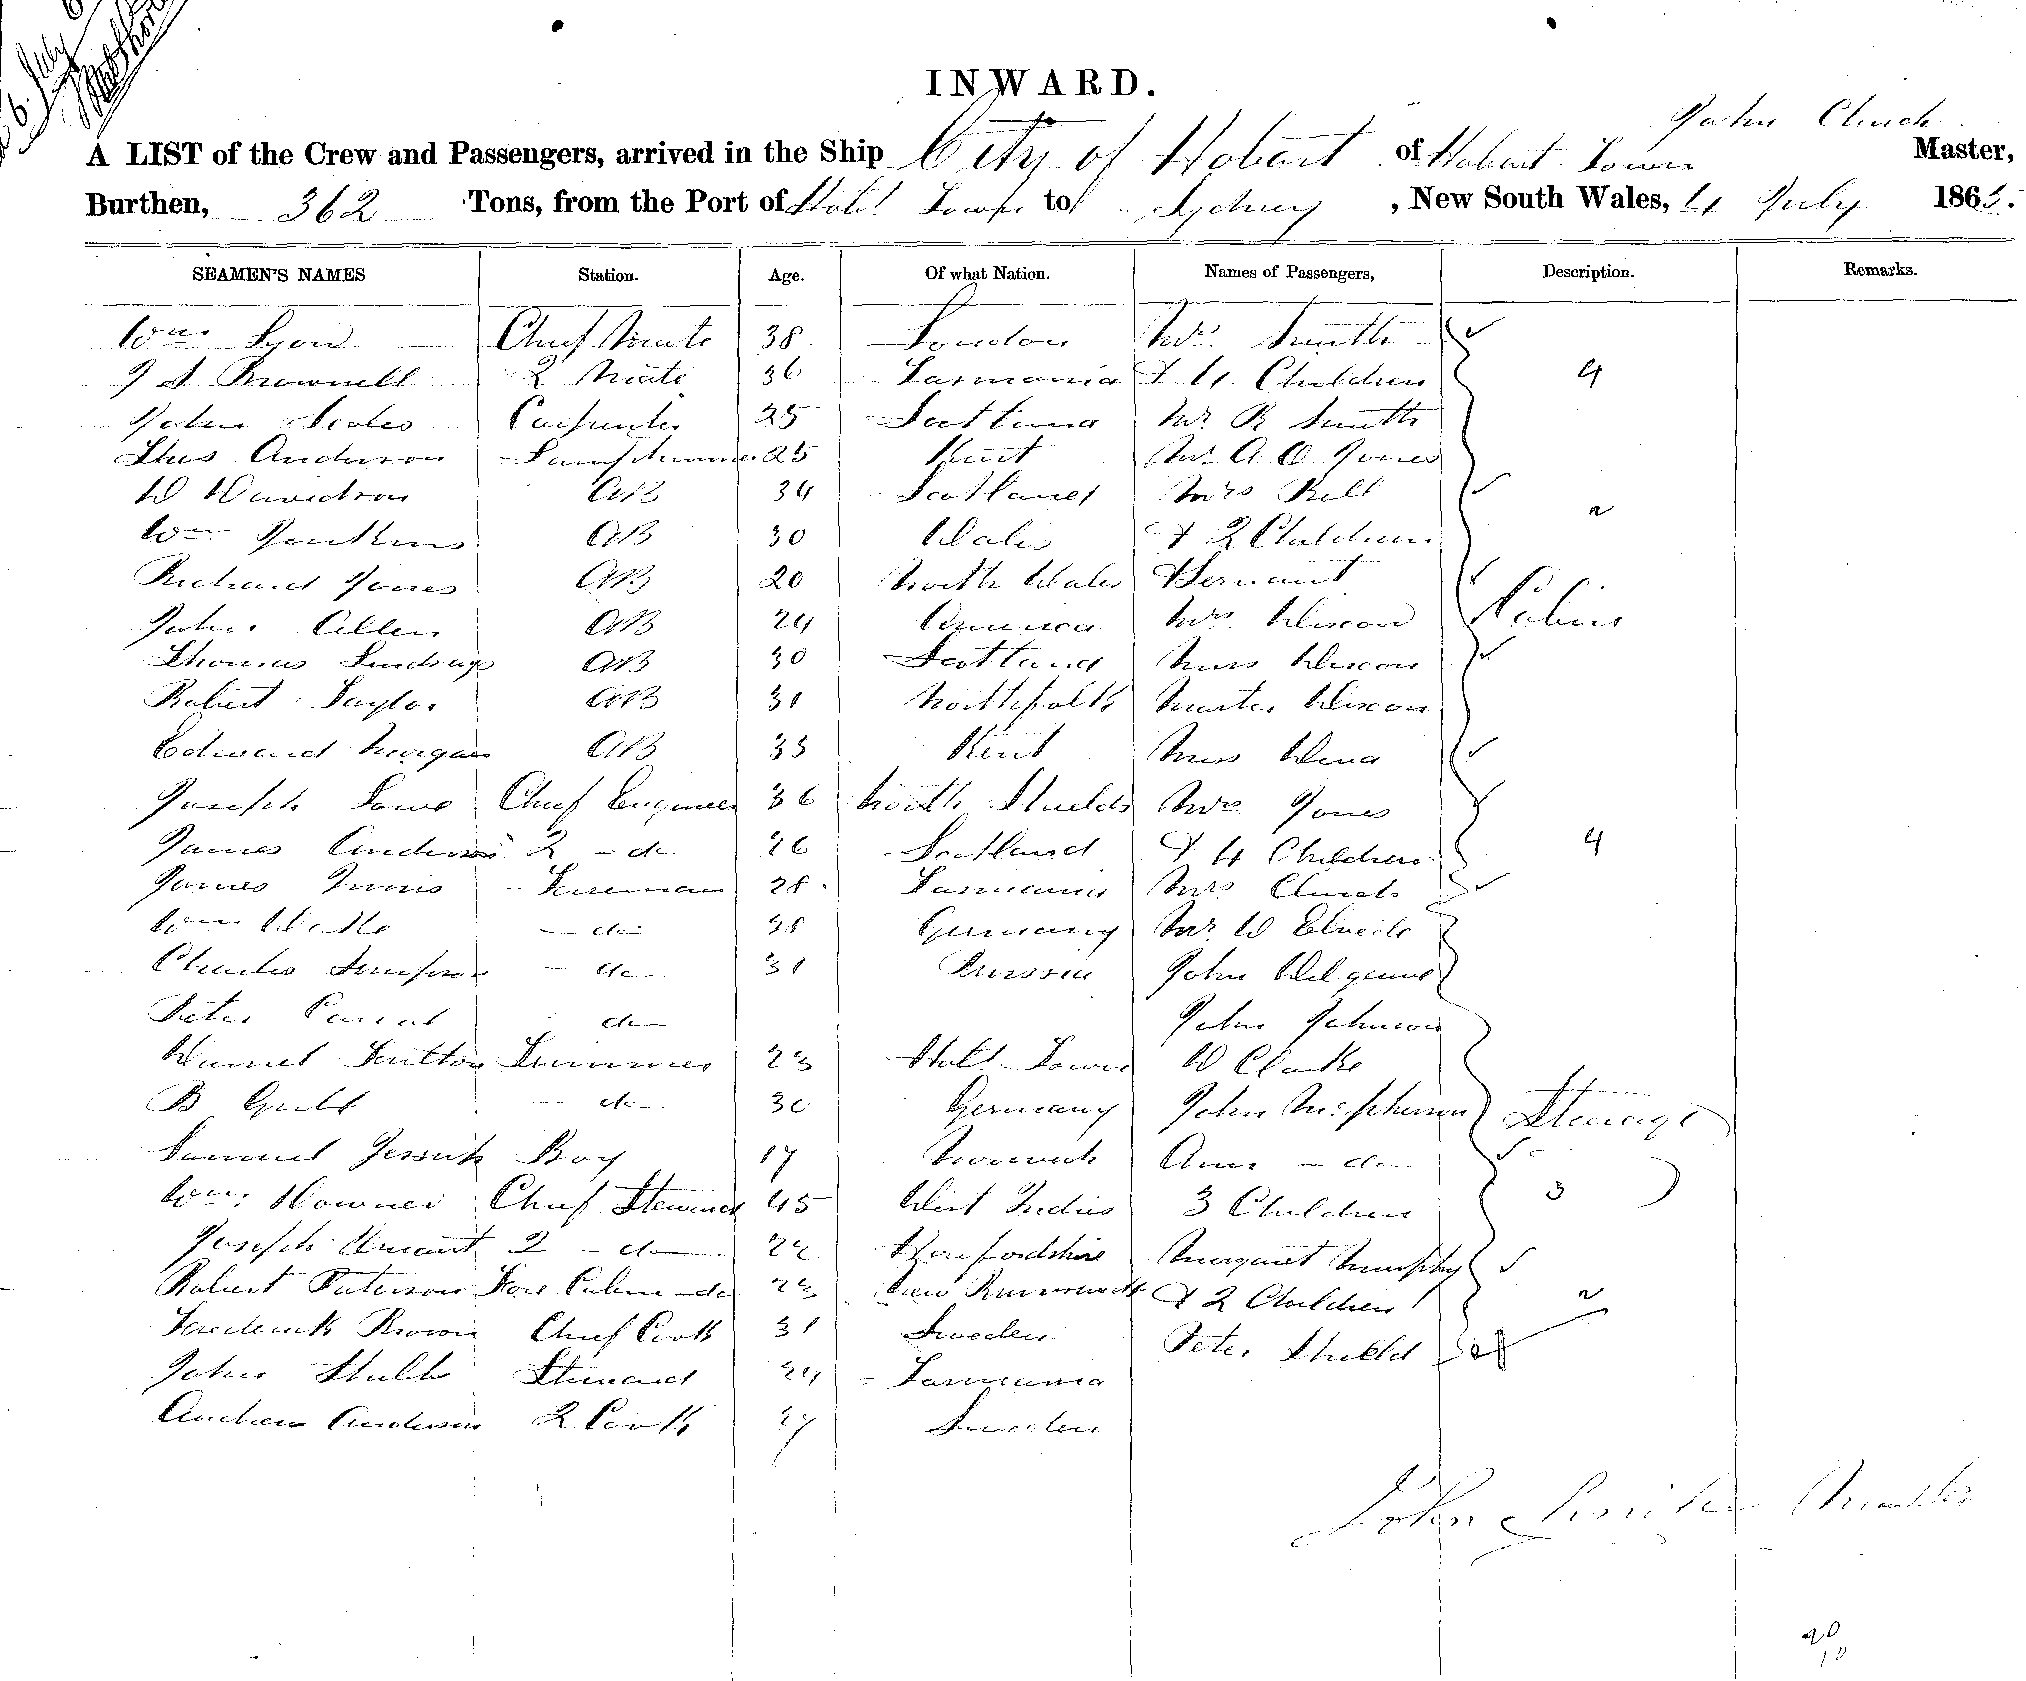 6 July
INWARD.
John Clinch
A LIST of the Crew and Passengers, arrived in the Ship City of Hobart of Hobart Town Master,
Burthen, 362 Tons, from the Port of Hobt Town to Sydney, New South Wales, 4 July 1865.
SEAMEN'S NAMES Station. Age. Of what Nation. Names of Passengers, Description. Remarks.
Wm Lyon Chief Mate 38 London Mrs Smith
J A Brownell 2 Mate 36 Tasmania & 4 Children 4
John Scales Carpenter 25 Scotland Mr R Smith
Thos Anderson Lamptrimmer 25 Kent Mr A O Jones
D Davidson AB 34 Scotland Mrs Bell
Wm Jenkins AB 30 Wales & 2 Children 2
Richard Jones AB 20 North Wales & Servant
John Allen AB 24 America Mrs Dixon Cabin
Thomas Lindsay AB 30 Scotland Miss Dixon
Robert Taylor AB 31 Northfolk Master Dixon
Edward Morgan AB 33 Kent Miss
Joseph Lowe Chief Engineer 36 North Shields Mrs Jones
James Anderson 2 - do 26 Scotland & 4 Children 4
James Innis Fireman 28 Tasmania Mrs Clinch
Wm - do 38 Germany Mr W Clinch
Charles Simpson - do 31 Prussia John
Peter do John Johnson
Daniel Sutton Trimmer 23 Hobt Town W Clarke
B - do 30 Germany John McPherson Steerage
Samuel Boy 17 Norwich Ann - do
Wm Downer Chief Steward 45 West Indies 3 Children 3
Joseph 2 - do 22 Herefordshire Margaret Murphy
Robert Paterson Fore Cabin - do 23 New Brunswick & 2 Children 2
Frederick Brown Chief Cook 31 Sweden Peter Shield
John Stubbs Steward 24 Tasmania
Andrew Anderson 2 Cook 27 Sweden
John Clinch Master